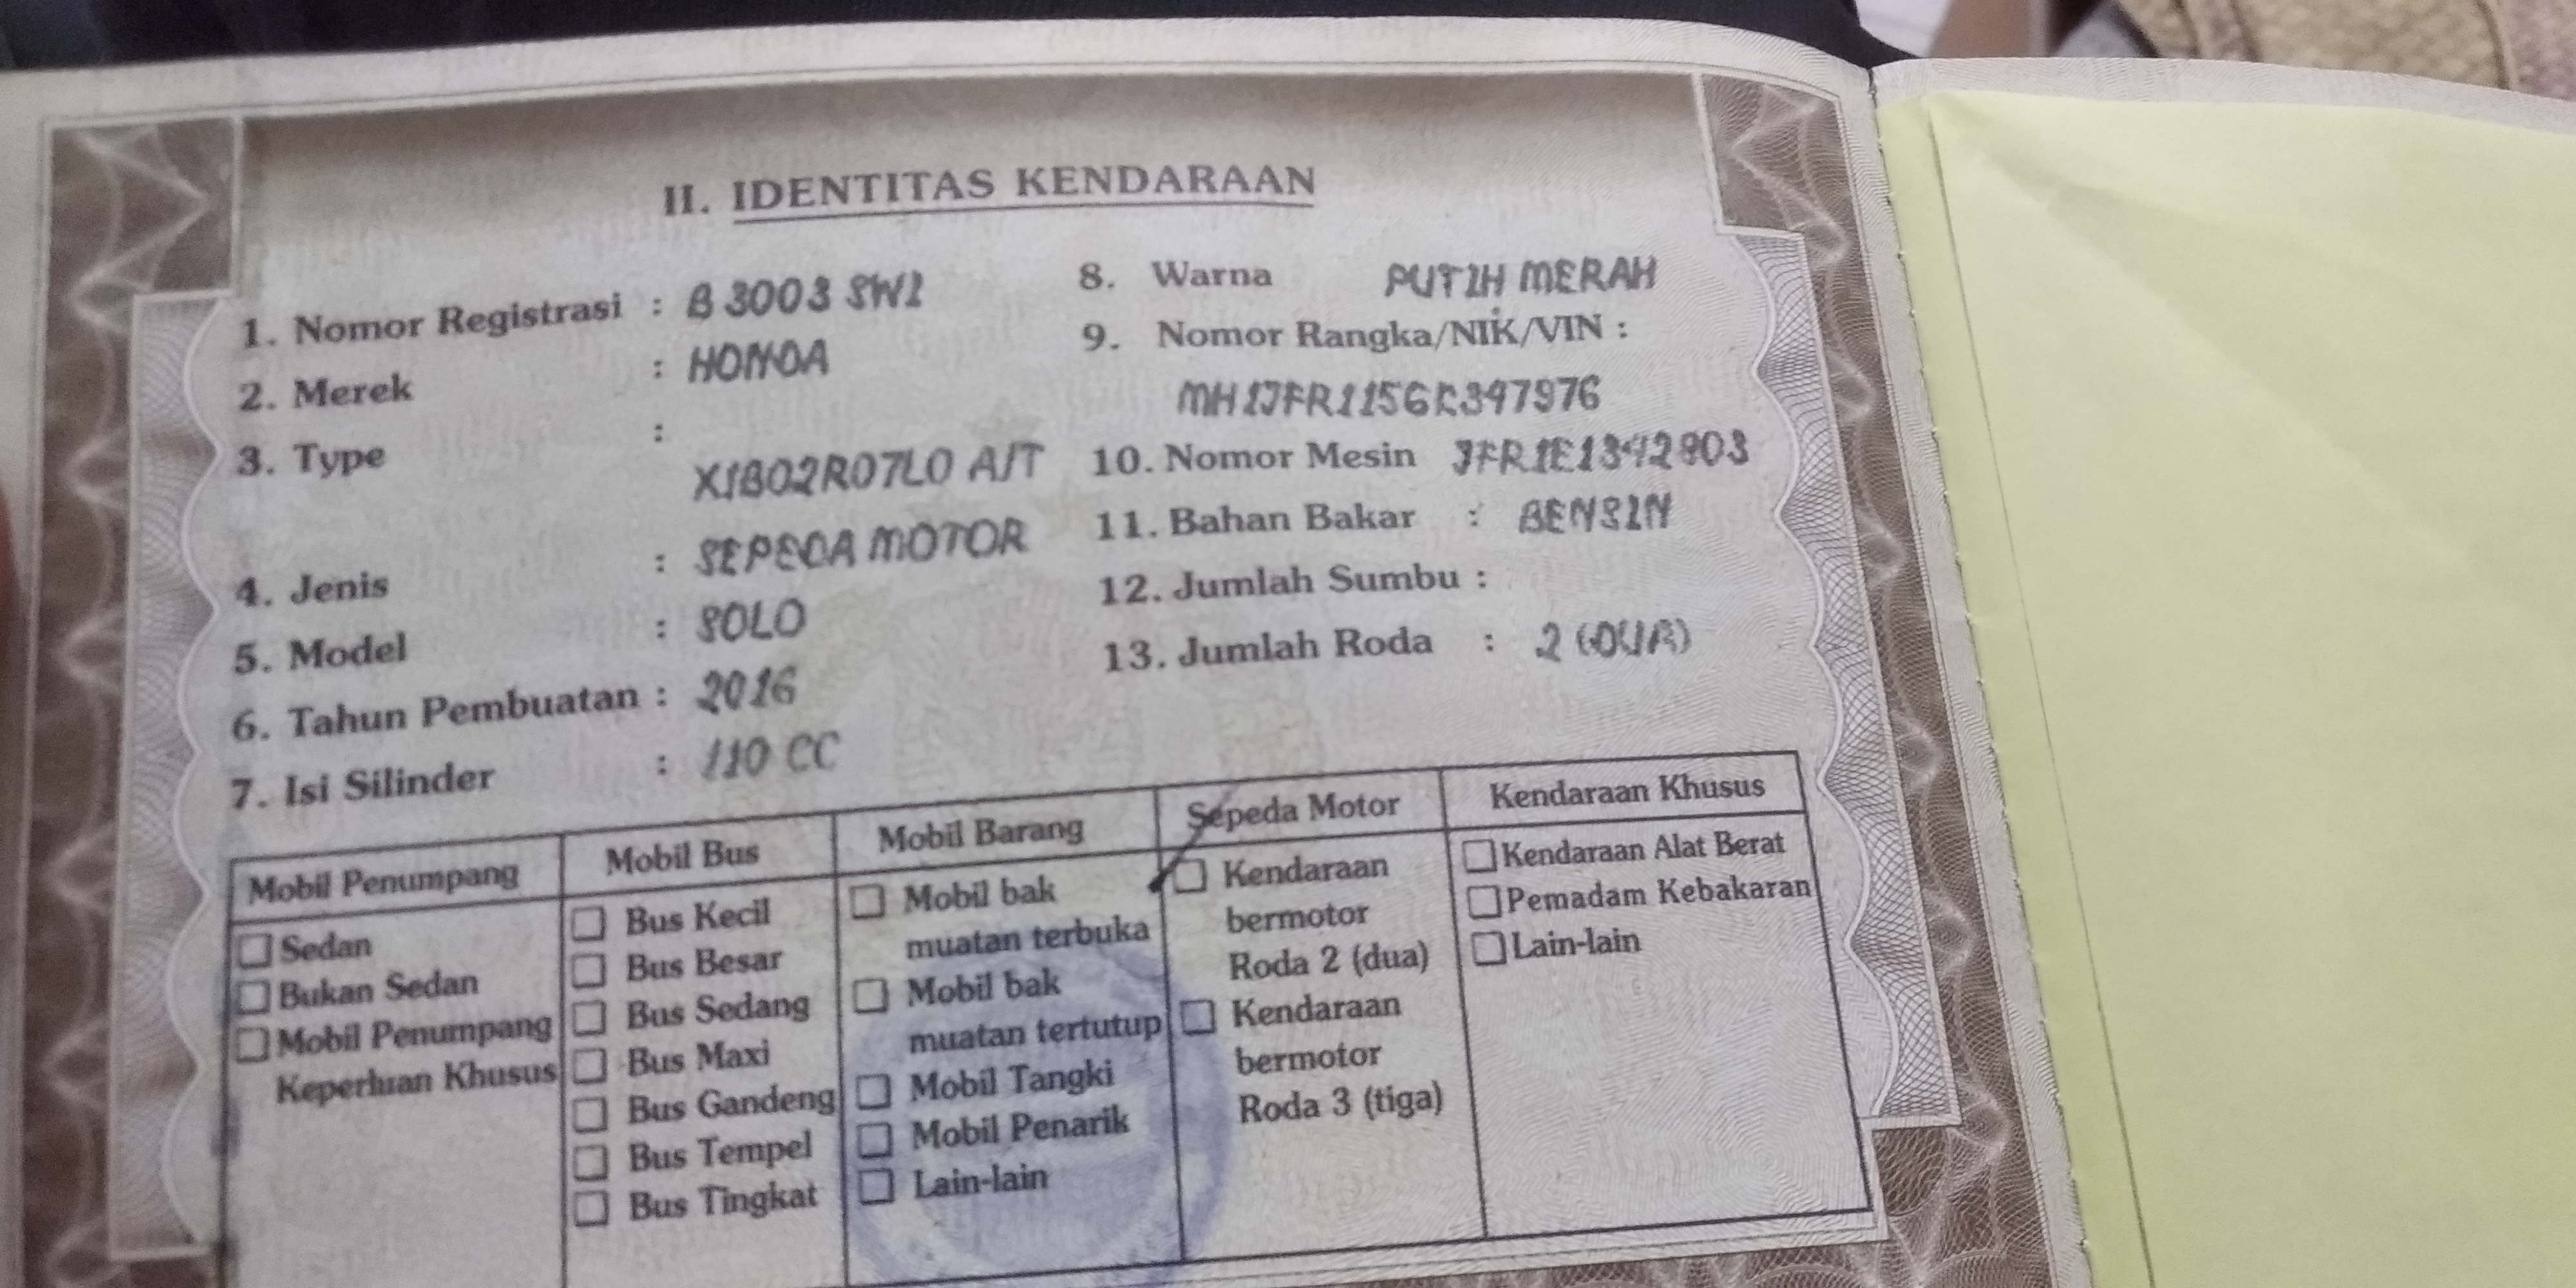 II. IDENTITAS KENDARAAN
1. Nomor Registrasi : B 3003 SWI
2. Merek : HONDA
3. Type :
X1B02R07L0 A/T
4. Jenis : SEPEDA MOTOR
5. Model : SOLO
6. Tahun Pembuatan : 2016
7. Isi Silinder : 110 CC
8. Warna PUTIH MERAH
9. Nomor Rangka/NIK/VIN :
MH1JFR115GK347976
10. Nomor Mesin JFR1E1342803
11. Bahan Bakar : BENSIN
12. Jumlah Sumbu :
13. Jumlah Roda : 2 (DUA)
Mobil Penumpang
Sedan
Bukan Sedan
Mobil Penumpang
Keperluan Khusus
Mobil Bus
Bus Kecil
Bus Besar
Bus Sedang
Bus Maxi
Bus Gandeng
Bus Tempel
Bus Tingkat
Mobil Barang
Mobil bak
muatan terbuka
Mobil bak
muatan tertutup
Mobil Tangki
Mobil Penarik
Lain-lain
Sepeda Motor
Kendaraan
bermotor
Roda 2 (dua)
Kendaraan
bermotor
Roda 3 (tiga)
Kendaraan Khusus
Kendaraan Alat Berat
Pemadam Kebakaran
Lain-lain